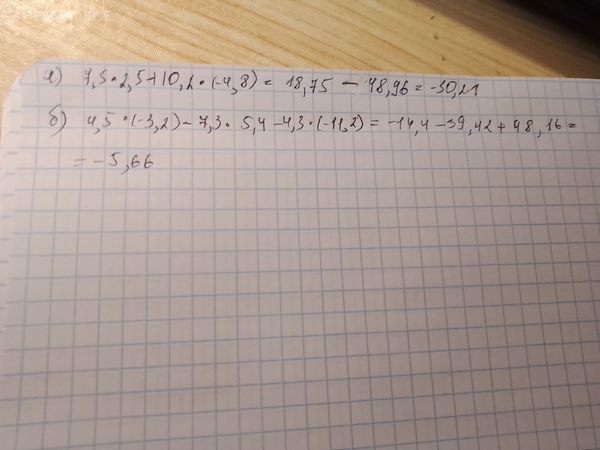 а) 7,5·2,5+10,2·(-4,8)= 18,75 - 48,96 = -30,21
б) 4,5·(-3,2)-7,3·5,4-4,3·(-11,2)=-14,4-39,42+48,16=
=-5,66